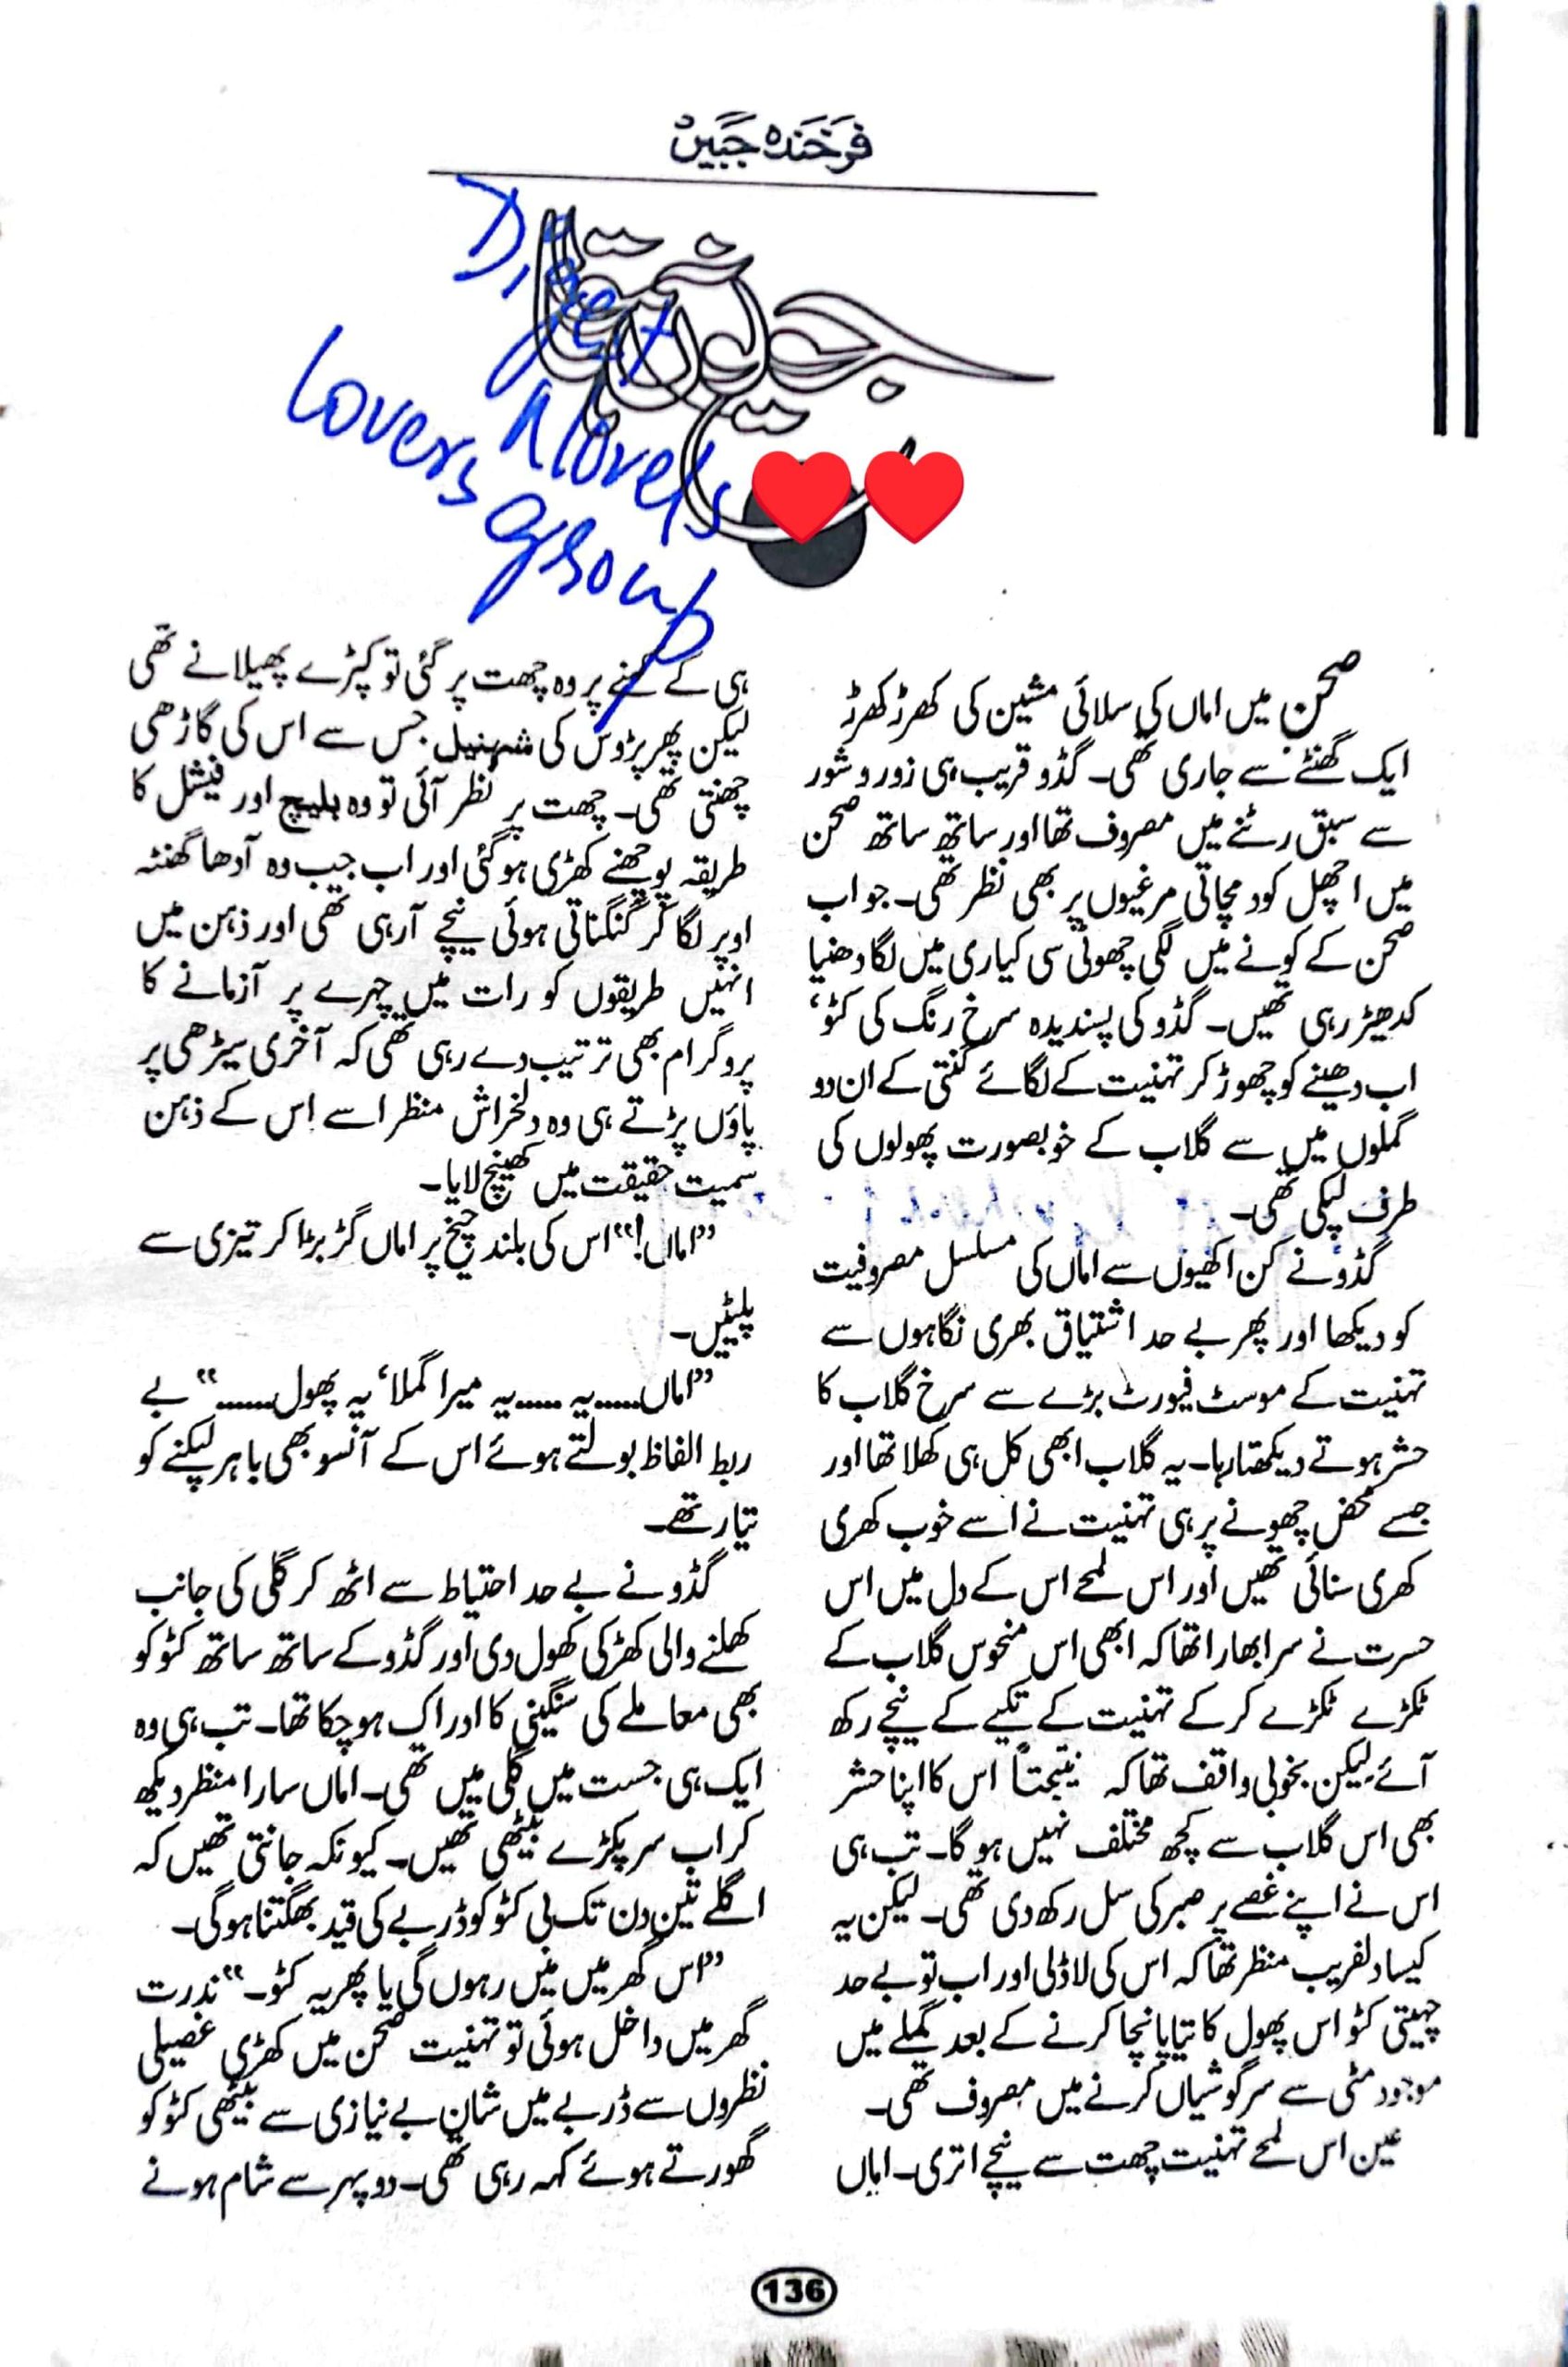 فرخندہ جبیں
Digest
Novels
Lovers
group
صحن میں اماں کی سلائی مشین کی کھڑ کھڑ
ایک گھنٹے سے جاری تھی۔ گڈو قریب ہی زور و شور
سے سبق رٹنے میں مصروف تھا اور ساتھ ساتھ صحن
میں اچھل کود مچاتی مرغیوں پر بھی نظر تھی۔ جو اب
صحن کے کونے میں لگی چھوٹی سی کیاری میں لگا دھنیا
کدھیڑ رہی تھیں۔ گڈو کی پسندیدہ سرخ رنگ کی کٹو،
اب دھنیے کو چھوڑ کر تہنیت کے لگائے گنتی کے ان دو
گملوں میں سے گلاب کے خوبصورت پھولوں کی
طرف لپکی تھی۔
گڈو نے کن اکھیوں سے اماں کی مسلسل مصروفیت
کو دیکھا اور پھر بے حد اشتیاق بھری نگاہوں سے
تہنیت کے موسٹ فیورٹ بڑے سے سرخ گلاب کا
حشر ہوتے دیکھتا رہا۔ یہ گلاب ابھی کل ہی کھلا تھا اور
جسے محض چھونے پر ہی تہنیت نے اسے خوب کھری
کھری سنائی تھیں اور اس لمحے اس کے دل میں اس
حسرت نے سر ابھارا تھا کہ ابھی اس منحوس گلاب کے
ٹکڑے ٹکڑے کر کے تہنیت کے تکیے کے نیچے رکھ
آئے لیکن بخوبی واقف تھا کہ نتیجتاً اس کا اپنا حشر
بھی اس گلاب سے کچھ مختلف نہیں ہو گا۔ تب ہی
اس نے اپنے غصے پر صبر کی سل رکھ دی تھی۔ لیکن یہ
کیسا دلفریب منظر تھا کہ اس کی لاڈلی اور اب تو بے حد
چہیتی کٹو اس پھول کا تیا پانچا کرنے کے بعد گملے میں
موجود مٹی سے سرگوشیاں کرنے میں مصروف تھی۔
عین اس لمحے تہنیت چھت سے نیچے اتری۔ اماں
ہی کے کہنے پر وہ چھت پر گئی تو کپڑے پھیلانے تھی
لیکن پھر پڑوس کی شہنیل جس سے اس کی گاڑھی
چھنتی تھی۔ چھت پر نظر آئی تو وہ بلیچ اور فیشل کا
طریقہ پوچھنے کھڑی ہو گئی اور اب جب وہ آدھا گھنٹہ
اوپر لگا کر گنگناتی ہوئی نیچے آرہی تھی اور ذہن میں
انہیں طریقوں کو رات میں چہرے پر آزمانے کا
پروگرام بھی ترتیب دے رہی تھی کہ آخری سیڑھی پر
پاؤں پڑتے ہی وہ دلخراش منظر اسے اس کے ذہن
سمیت حقیقت میں کھینچ لایا۔
”اماں!“ اس کی بلند چیخ پر اماں گڑبڑا کر تیزی سے
پلٹیں۔
”اماں......یہ......یہ میرا گملا، یہ پھول.......“ بے
ربط الفاظ بولتے ہوئے اس کے آنسو بھی باہر لپکنے کو
تیار تھے۔
گڈو نے بے حد احتیاط سے اٹھ کر گلی کی جانب
کھلنے والی کھڑکی کھول دی اور گڈو کے ساتھ ساتھ کٹو کو
بھی معاملے کی سنگینی کا ادراک ہو چکا تھا۔ تب ہی وہ
ایک ہی جست میں گلی میں تھی۔ اماں سارا منظر دیکھ
کر اب سر پکڑے بیٹھی تھیں۔ کیونکہ جانتی تھیں کہ
اگلے تین دن تک بی کٹو کو ڈربے کی قید بھگتنا ہو گی۔
”اس گھر میں میں رہوں گی یا پھر یہ کٹو۔“ ندرت
گھر میں داخل ہوئی تو تہنیت صحن میں کھڑی غصیلی
نظروں سے ڈربے میں شان بے نیازی سے بیٹھی کٹو کو
گھورتے ہوئے کہہ رہی تھی۔ دوپہر سے شام ہونے
136